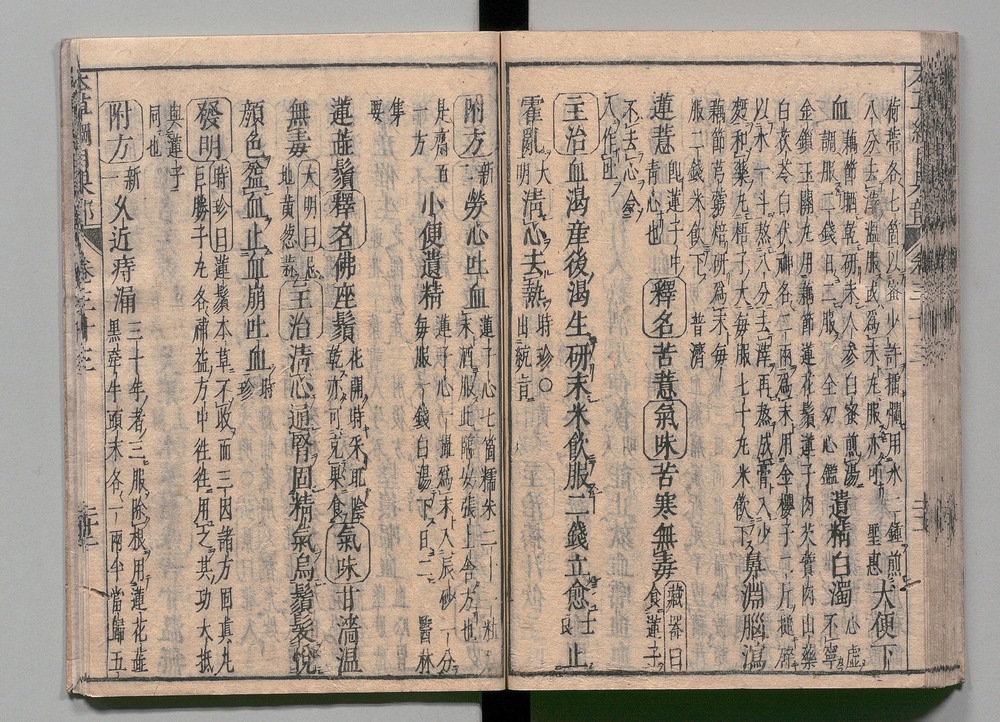 荷蒂各七箇以蜜少許擂爛用水二鍾煎八分去滓溫服或爲末丸服亦可 聖惠 大便下
血 藕節晒乾研末人參白蜜煎湯調服二錢日二服 全幼心鑑 遺精白濁 心虛不寧
金鎖玉關丸用藕節蓮花鬚蓮子肉芡實肉山藥
白茯苓白茯神各二兩爲末用金櫻子二斤搥碎
以水一斗熬八分去滓再熬成膏入少
麪和藥丸梧子大每服七十丸米飲下 鼻淵腦瀉
藕節芎藭焙研爲末每
服二錢米飲下 普濟
蓮薏 即蓮子中靑心也 釋名 苦薏 氣味 苦寒無毒 藏器曰食蓮子
不去心令
人作吐
主治 血渴產後渴生研末米飲服二錢立愈 士良 止
霍亂 大明 淸心去熱 時珍 ○ 出統旨
附方 新二 勞心吐血 蓮子心七箇糯米二十一粒末酒服此臨安張上舍方也
是齋 小便遺精 蓮子心一撮爲末入辰砂一分
一方 每服一錢白湯下日二 醫林
集
要
蓮蕋鬚 釋名 佛座鬚 花開時采取陰乾亦可充果食 氣味 甘濇溫
無毒 大明曰忌地黃葱蒜 主治 淸心通腎固精氣烏鬚髮悅
顏色益血止血崩吐血 時珍
發明 時珍曰蓮鬚本草不收而三因諸方固眞丸巨勝子丸各補益方中往往用之其功大抵
與蓮子
同也
附方 新一 久近痔漏 三十年者三服除根用蓮花蕋黑牽牛頭末各一兩半當歸五